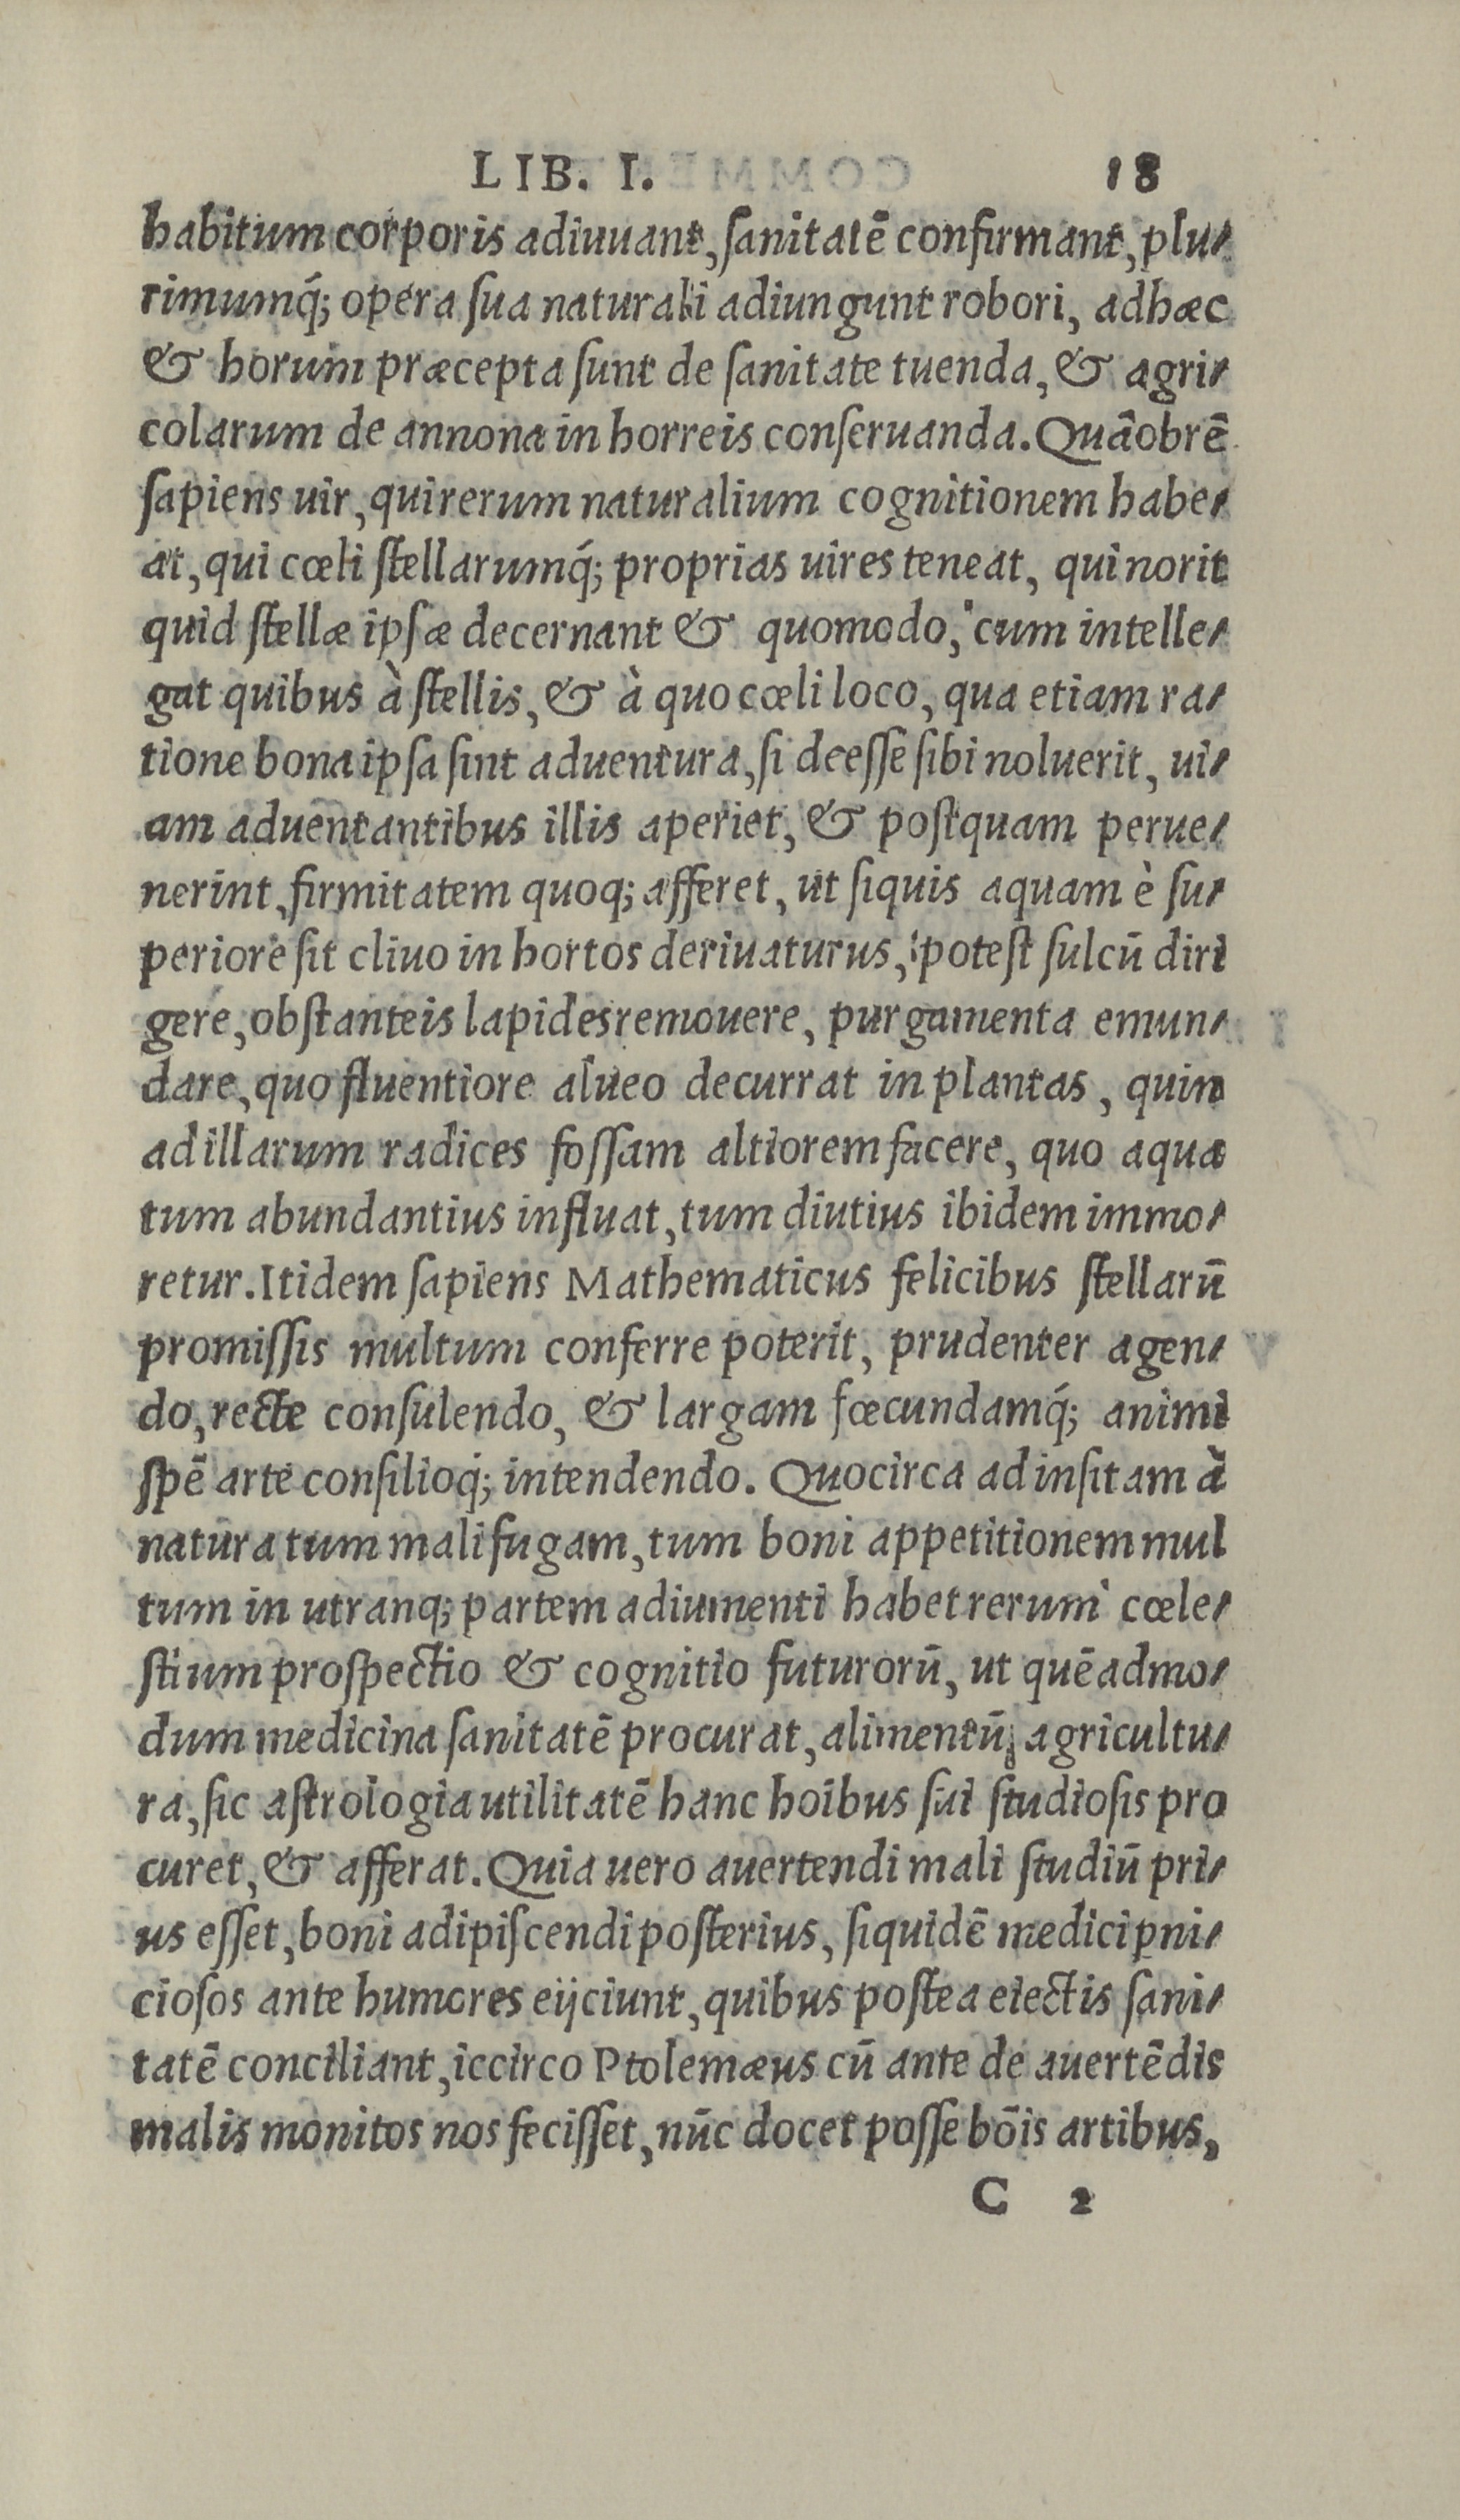 LIB. I. 18
habitum corporis adiuuant, sanitatē confirmant, plu-
rimumq́; opera sua naturali adiungunt robori, adhæc
& horum præcepta sunt de sanitate tuenda, & agri-
colarum de annona in horreis conseruanda. Quāobrē
sapiens uir, qui rerum naturalium cognitionem habe-
at, qui cœli stellarumq́; proprias uires teneat, qui norit
quid stellæ ipsæ decernant & quomodo, cum intelle-
gat quibus à stellis, & à quo cœli loco, qua etiam ra-
tione bona ipsa sint aduentura, si deesse sibi noluerit, ui-
am aduentantibus illis aperiet, & postquam perue-
nerint, firmitatem quoq; afferet, ut siquis aquam è su-
periore sit cliuo in hortos deriuaturus, potest sulcū diri
gere, obstanteis lapides remouere, purgamenta emun-
dare, quo fluentiore alueo decurrat in plantas, quin
ad illarum radices fossam altiorem facere, quo aqua
tum abundantius influat, tum diutius ibidem immo-
retur. Itidem sapiens Mathematicus felicibus stellarū
promissis multum conferre poterit, prudenter agen-
do, recte consulendo, & largam fœcundamq́; animi
spē arte consilioq́; intendendo. Quocirca ad insitam à
natura tum mali fugam, tum boni appetitionem mul
tum in utranq; partem adiumenti habet rerum cœle-
stium prospectio & cognitio futurorū, ut quēadmo-
dum medicina sanitatē procurat, alimentū agricultu-
ra, sic astrologia utilitatē hanc hoībus sui studiosis pro
curet, & afferat. Quia uero auertendi mali studiū pri-
us esset, boni adipiscendi posterius, siquidē medici pni-
ciosos ante humores eijciunt, quibus postea eiectis sani-
tatē conciliant, iccirco Ptolemæus cū ante de auertēdis
malis monitos nos fecisset, nūc docet posse bōis artibus,
C 2